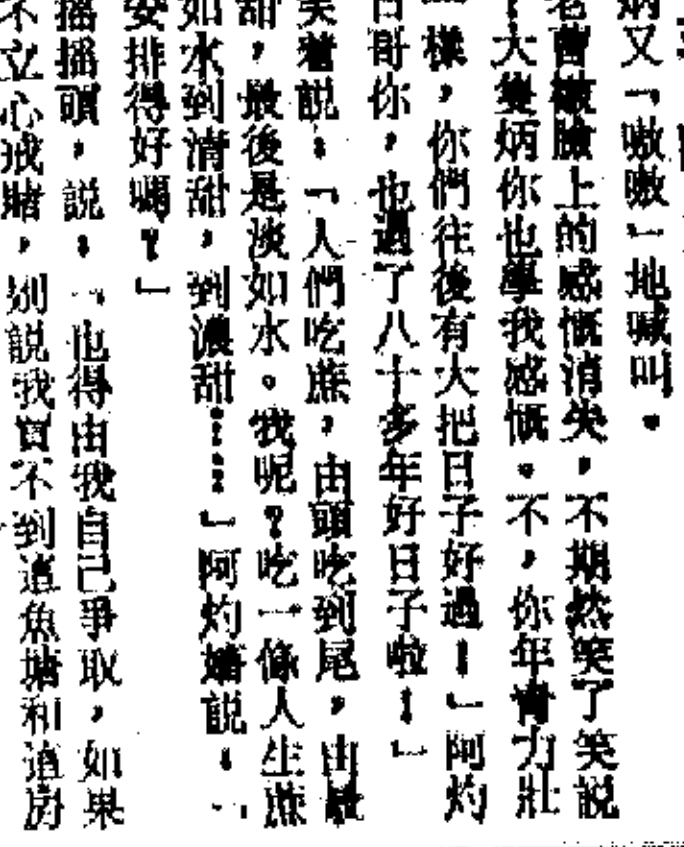 炳又「嗷嗷」地喊叫。
老曹皺臉上的感慨消失,不期然笑了笑説
大隻炳你也學我感慨。不,你年青力壯
樣,你們往後有大把日子好過!」阿灼
日哥你,也過了八十多年好日子啦!」
笑着説:「人們吃蔗,由頭吃到尾,由
甜,最後是淡如水。我呢?吃一條人生蔗
如水到清甜,到濃甜……」阿灼嬸説:「
安排得好嗎?」
搖搖頭,説:「也得由我自己爭取,如果
不立心戒賭,別説我買不到這魚塘和這房